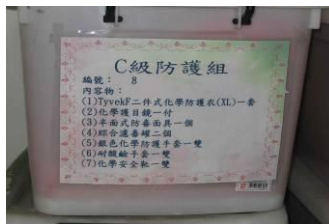 C級防護組
編號： 8
內容物：
(1)TyvekF二件式化學防護衣(XL)一套
(2)化學護目鏡一付
(3)半面式防毒面具一個
(4)綜合濾毒罐二個
(5)銀色化學防護手套一雙
(6)耐酸鹼手套一雙
(7)化學安全靴一雙